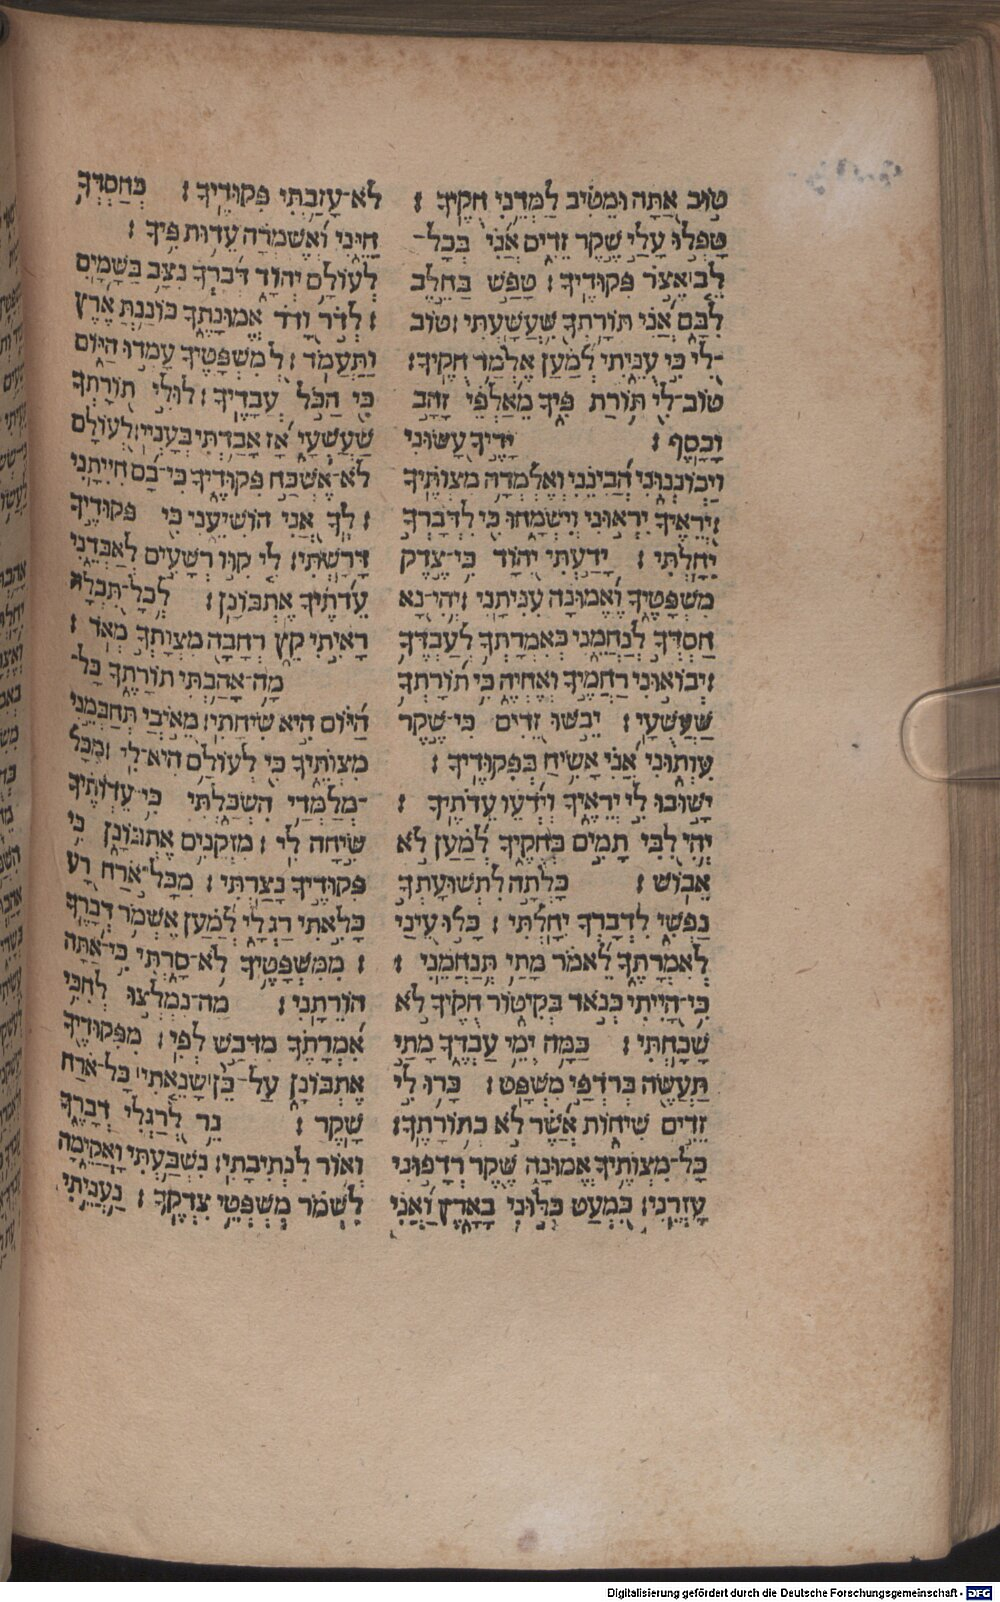 טוֹב אַתָּה וּמֵטִיב לַמְּדֵנִי חֻקֶּיךָ׃
טָפְלוּ עָלַי שֶׁקֶר זֵדִים אֲנִי בְּכָל־
לֵב אֶצּוֹר פִּקּוּדֶיךָ׃ טָפַשׁ בַּחֵלֶב
לִבָּם אֲנִי תּוֹרָתְךָ שִׁעֲשָׁעְתִּי׃ טוֹב
־לִי כִי עֻנֵּיתִי לְמַעַן אֶלְמַד חֻקֶּיךָ׃
טוֹב־לִי תּוֹרַת פִּיךָ מֵאַלְפֵי זָהָב
וָכָסֶף׃ יָדֶיךָ עָשׂוּנִי
וַיְכוֹנְנוּנִי הֲבִינֵנִי וְאֶלְמְדָה מִצְוֹתֶיךָ
׃ יְרֵאֶיךָ יִרְאוּנִי וְיִשְׂמָחוּ כִּי לִדְבָרְךָ
יִחָלְתִּי׃ יָדַעְתִּי יְהוָֹד כִּי־צֶדֶק
מִשְׁפָּטֶיךָ וֶאֱמוּנָה עִנִּיתָנִי׃ יְהִי־נָא
חַסְדְּךָ לְנַחֲמֵנִי כְּאִמְרָתְךָ לְעַבְדֶּךָ
׃ יְבוֹאוּנִי רַחֲמֶיךָ וְאֶחְיֶה כִּי תוֹרָתְךָ
שַׁעֲשֻׁעָי׃ יֵבֹשׁוּ זֵדִים כִּי־שֶׁקֶר
עִוְּתוּנִי אֲנִי אָשִׂיחַ בְּפִקּוּדֶיךָ׃
יָשׁוּבוּ לִי יְרֵאֶיךָ וְיָדְעוּ עֵדֹתֶיךָ׃
יְהִי לִבִּי תָמִים בְּחֻקֶּיךָ לְמַעַן לֹא
אֵבוֹשׁ׃ כָּלְתָה לִתְשׁוּעָתְךָ
נַפְשִׁי לִדְבָרְךָ יִחָלְתִּי׃ כָּלוּ עֵינַי
לְאִמְרָתֶךָ לֵאמֹר מָתַי תְּנַחֲמֵנִי׃
כִּי־הָיִיתִי כְּנֹאד בְּקִיטוֹר חֻקֶּיךָ לֹא
שָׁכָחְתִּי׃ כַּמָּה יְמֵי עַבְדֶּךָ מָתַי
תַּעֲשֶׂה בְרֹדְפַי מִשְׁפָּט׃ כָּרוּ לִי
זֵדִים שִׁיחוֹת אֲשֶׁר לֹא כְתוֹרָתֶךָ׃
כָּל־מִצְוֹתֶיךָ אֱמוּנָה שֶׁקֶר רְדָפוּנִי
עָזְרֵנִי׃ כִּמְעַט כִּלּוּנִי בָאָרֶץ וַאֲנִי
לֹא־עָזַבְתִּי פִקּוּדֶיךָ׃ כְּחַסְדְּךָ
חַיֵּנִי וְאֶשְׁמְרָה עֵדוּת פִּיךָ׃
לְעוֹלָם יְהוָֹד דְּבָרְךָ נִצָּב בַּשָּׁמָיִם
׃ לְדֹר וָדֹד אֱמוּנָתֶךָ כּוֹנַנְתָּ אֶרֶץ
וַתַּעֲמֹד׃ לְמִשְׁפָּטֶיךָ עָמְדוּ הַיּוֹם
כִּי הַכֹּל עֲבָדֶיךָ׃ לוּלֵי תוֹרָתְךָ
שַׁעֲשֻׁעָי אָז אָבַדְתִּי בְעָנְיִי׃ לְעוֹלָם
לֹא־אֶשְׁכַּח פִּקּוּדֶיךָ כִּי־בָם חִיִּיתָנִי
׃ לְךָ אֲנִי הוֹשִׁיעֵנִי כִּי פִקּוּדֶיךָ
דָרָשְׁתִּי׃ לִי קִוּוּ רְשָׁעִים לְאַבְּדֵנִי
עֵדֹתֶיךָ אֶתְבּוֹנָן׃ לְכָל־תִּכְלָה
רָאִיתִי קֵץ רְחָבָה מִצְוָתְךָ מְאֹד׃
מָה־אָהַבְתִּי תוֹרָתֶךָ כָּל־
הַיּוֹם הִיא שִׂיחָתִי׃ מֵאֹיְבַי תְּחַכְּמֵנִי
מִצְוֹתֶיךָ כִּי לְעוֹלָם הִיא־לִי׃ מִכָּל
־מְלַמְּדַי הִשְׂכַּלְתִּי כִּי עֵדְוֹתֶיךָ
שִׂיחָה לִי׃ מִזְּקֵנִים אֶתְבּוֹנָן כִּי
פִקּוּדֶיךָ נָצָרְתִּי׃ מִכָּל־אֹרַח רָע
כָּלִאתִי רַגְלָי לְמַעַן אֶשְׁמֹר דְּבָרֶךָ
׃ מִמִּשְׁפָּטֶיךָ לֹא־סָרְתִּי כִּי־אַתָּה
הוֹרֵתָנִי׃ מַה־נִּמְלְצוּ לְחִכִּי
אִמְרָתֶךָ מִדְּבַשׁ לְפִי׃ מִפִּקּוּדֶיךָ
אֶתְבּוֹנָן עַל־כֵּן שָׂנֵאתִי כָּל־אֹרַח
שָׁקֶר׃ נֵר לְרַגְלִי דְבָרֶךָ
וְאוֹר לִנְתִיבָתִי׃ נִשְׁבַּעְתִּי וָאֲקַיֵּמָה
לִשְׁמֹר מִשְׁפְּטֵי צִדְקֶךָ׃ נַעֲנֵיתִי
Digitalisierung gefördert durch die Deutsche Forschungsgemeinschaft - DFG